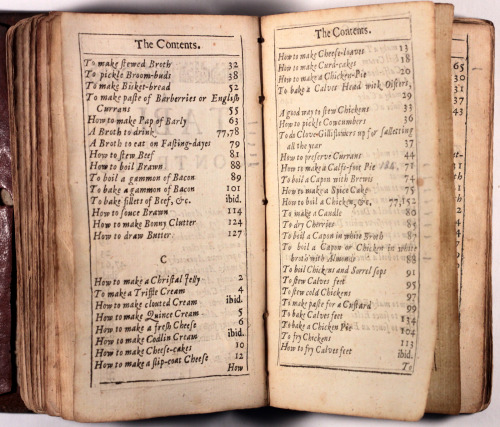 The Contents.
To make stewed Broth 32
To pickle Broom-buds 38
To make Bisket-bread 52
To make paste of Barberries or English
Currans 55
How to make Pap of Barly 63
A Broth to drink 77,78
A Broth to eat on Fasting-dayes 79
How to stew Beef 81
How to boil Brawn 88
To boil a gammon of Bacon 89
To bake a gammon of Bacon 101
To bake fillets of Beef, &c. ibid.
How to souce Brawn 114
How to make Bonny Clutter 124
How to draw Butter. 127
C
How to make a Christal Jelly 2
To make a Triffle Cream 4
How to make clouted Cream ibid.
How to make Quince Cream 5
How to make a fresh Cheese 6
How to make Codlin Cream ibid.
How to make Cheese-cakes 10
How to make a slip-coat Cheese 12
How
The Contents.
How to make Cheese-loaves 13
How to make Curd-cakes 18
How to make a Chicken-Pie 20
To bake a Calves Head with Oisters,
29
A good way to stew Chickens 33
How to pickle Cowcumbers 36
To do Clove Gilliflowers up for salletting
all the year 37
How to preserve Currans 44
How to make a Calfs-foot Pie 71
To boil a Capon with Brewis 74
How to make a Spice Cake 75
How to boil a Chicken, &c, 77,152
To make a Caudle 80
To dry Cherries 85
To boil a Capon in white Broth 87
To boil a Capon or Chicken in white
broth with Almonds 88
To boil Chickens and Sorrel sops 91
To stew Calves feet 95
To stew cold Chickens 97
To make paste for a Custard 99
To bake Calves feet 134
To bake a Chicken Pie 104
To fry Chickens 113
How to fry Calves feet ibid.
To
65
30
31
37
43